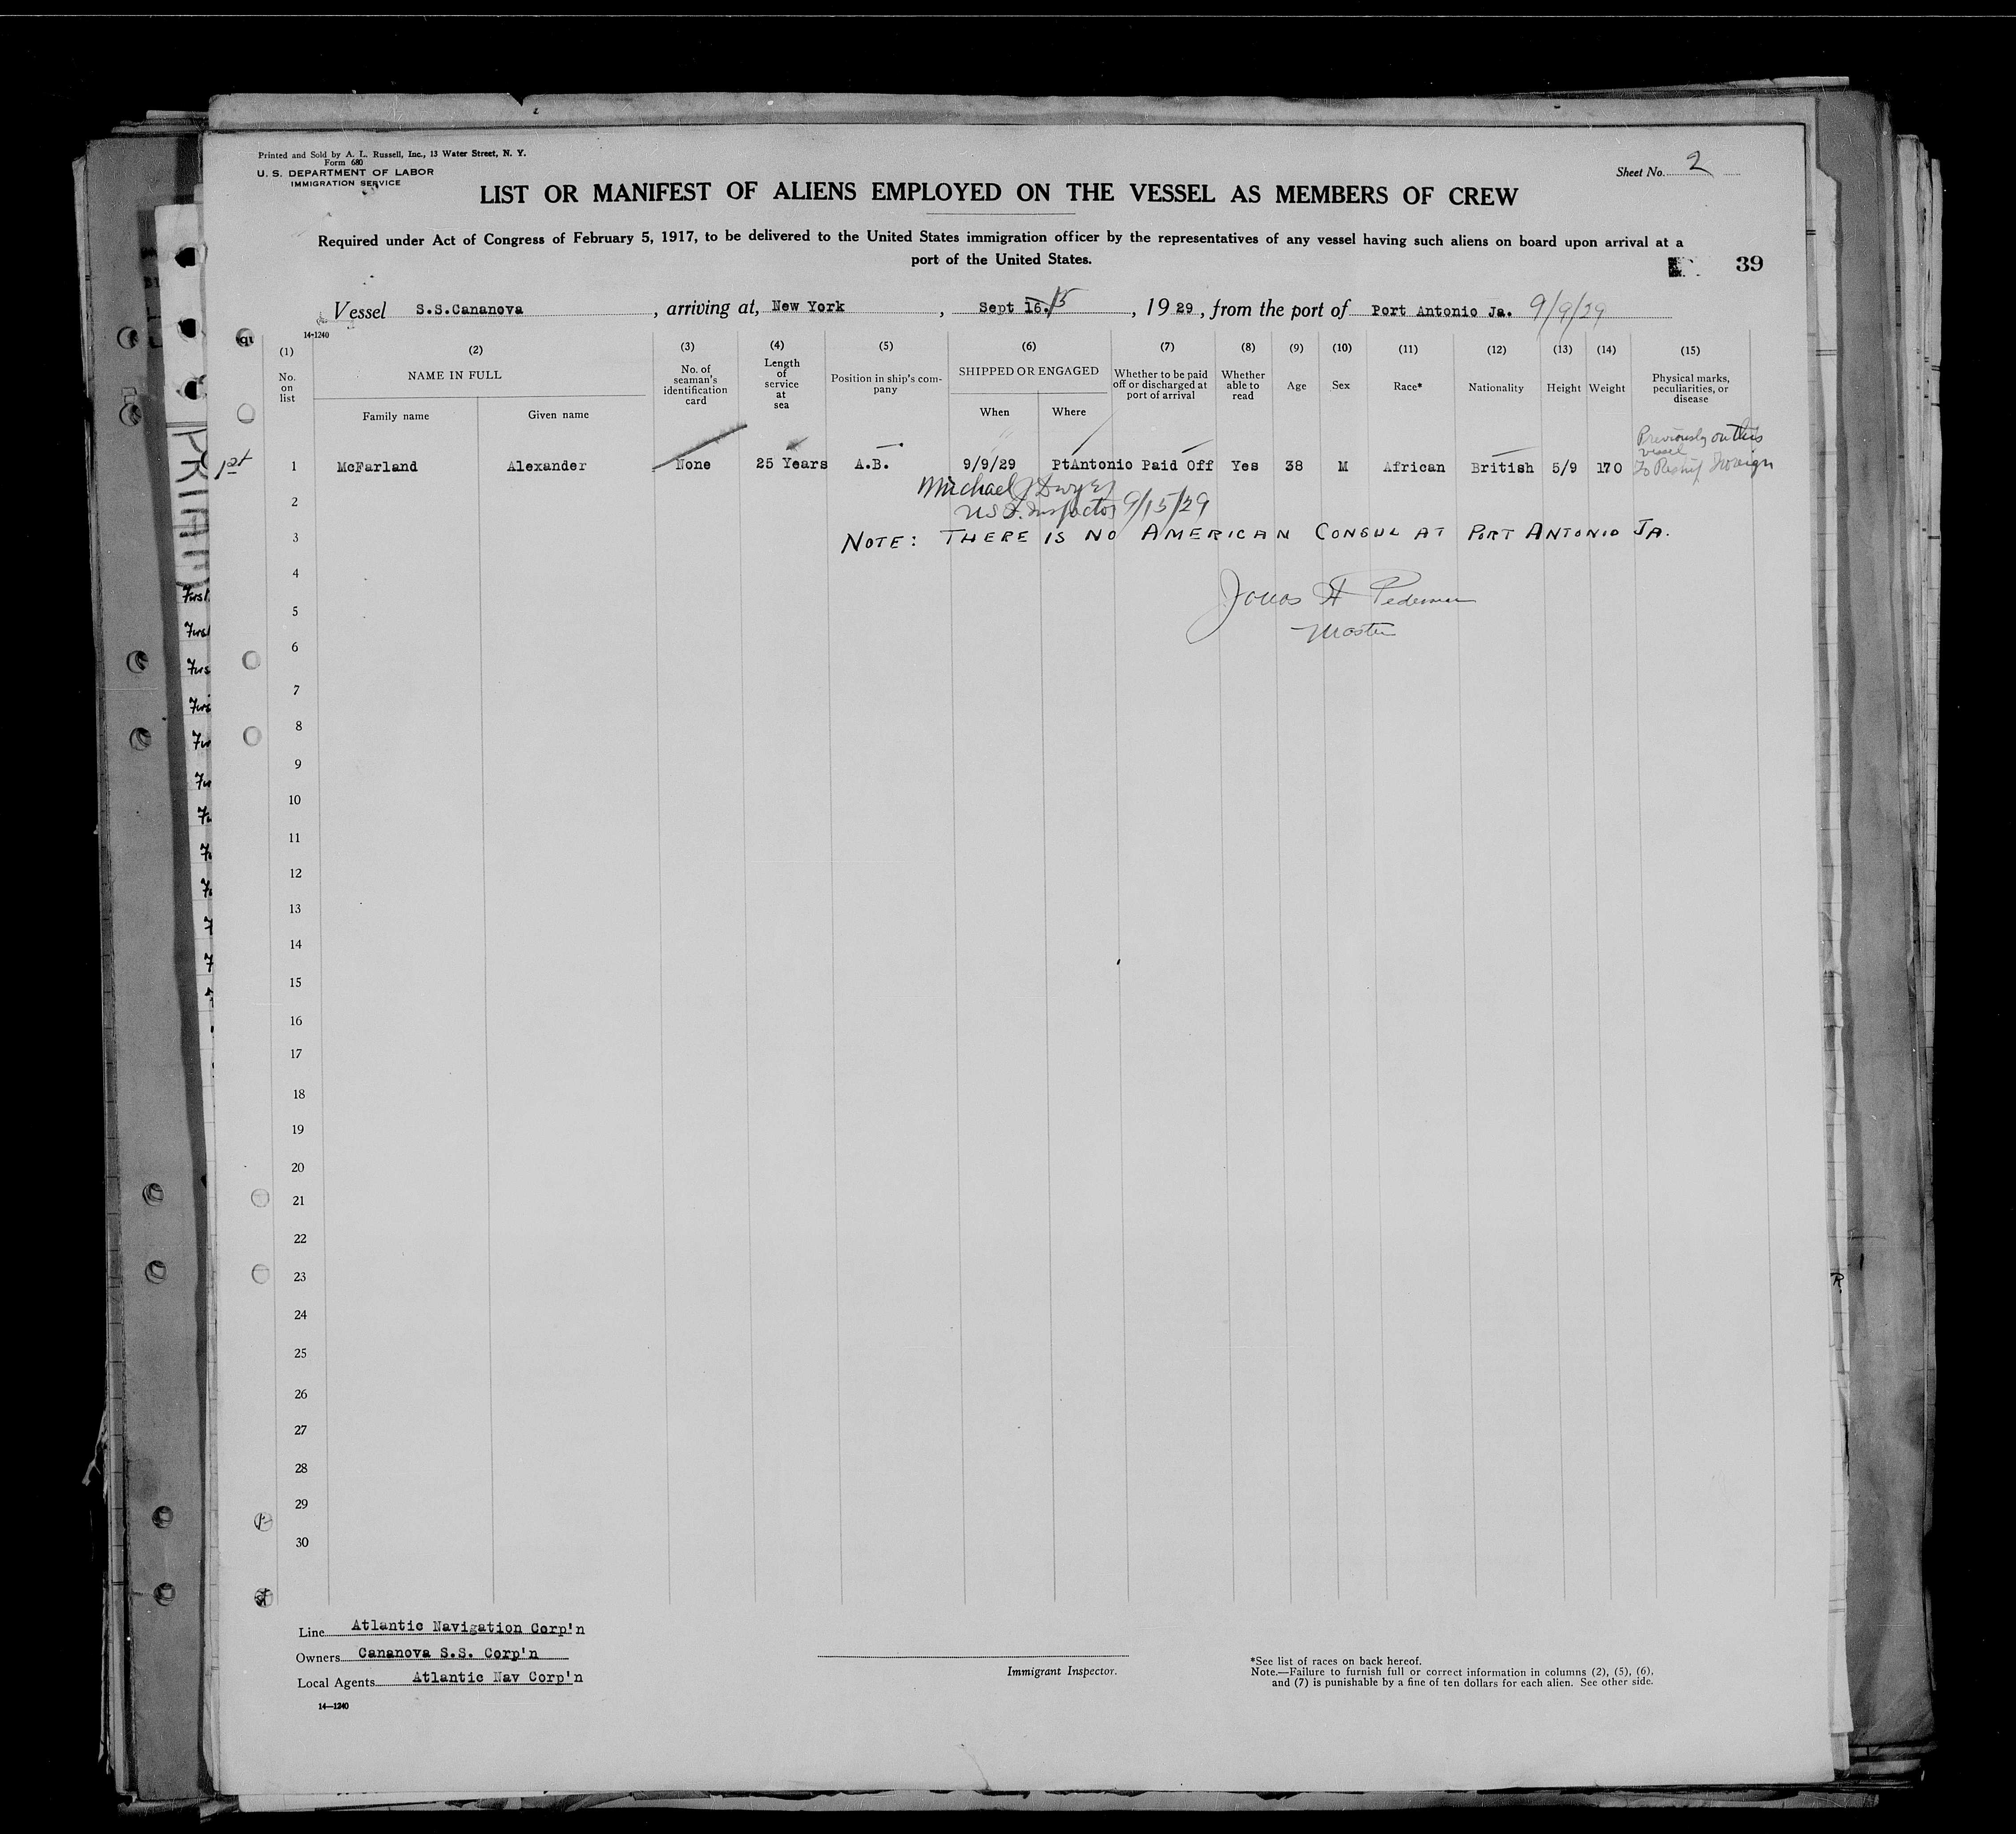 Printed and Sold by A. L. Russell, Inc., 13 Water Street, N. Y.
Form 680
U. S. DEPARTMENT OF LABOR
IMMIGRATION SERVICE
Sheet No. 2
LIST OR MANIFEST OF ALIENS EMPLOYED ON THE VESSEL AS MEMBERS OF CREW
Required under Act of Congress of February 5, 1917, to be delivered to the United States immigration officer by the representatives of any vessel having such aliens on board upon arrival at a
port of the United States.
39
Vessel S.S.Cananova, arriving at, New York, Sept 16. 15, 1929, from the port of Port Antonio Ja. 9/9/29
14-1240
(1) (2) (3) (4) (5) (6) (7) (8) (9) (10) (11) (12) (13) (14) (15)
No. on list NAME IN FULL No. of seaman's identification card Length of service at sea Position in ship's company SHIPPED OR ENGAGED Whether to be paid off or discharged at port of arrival Whether able to read Age Sex Race* Nationality Height Weight Physical marks, peculiarities, or disease
Family name Given name When Where
Previously on this
vessel
1st 1 McFarland Alexander None 25 Years A.B. 9/9/29 PtAntonio Paid Off Yes 38 M African British 5/9 170 To Reship Foreign
Michael J Dwyer
2 U S I. Inspector 9/15/29
3 NOTE: THERE IS NO AMERICAN CONSUL AT PORT ANTONIO JA.
4
5 Jonas
6 Master
7
8
9
10
11
12
13
14
15
16
17
18
19
20
21
22
23
24
25
26
27
28
29
30
Line Atlantic Navigation Corp'n
Owners Cananova S.S. Corp'n
Local Agents Atlantic Nav Corp'n
14—1240
Immigrant Inspector.
*See list of races on back hereof.
Note.—Failure to furnish full or correct information in columns (2), (5), (6),
and (7) is punishable by a fine of ten dollars for each alien. See other side.